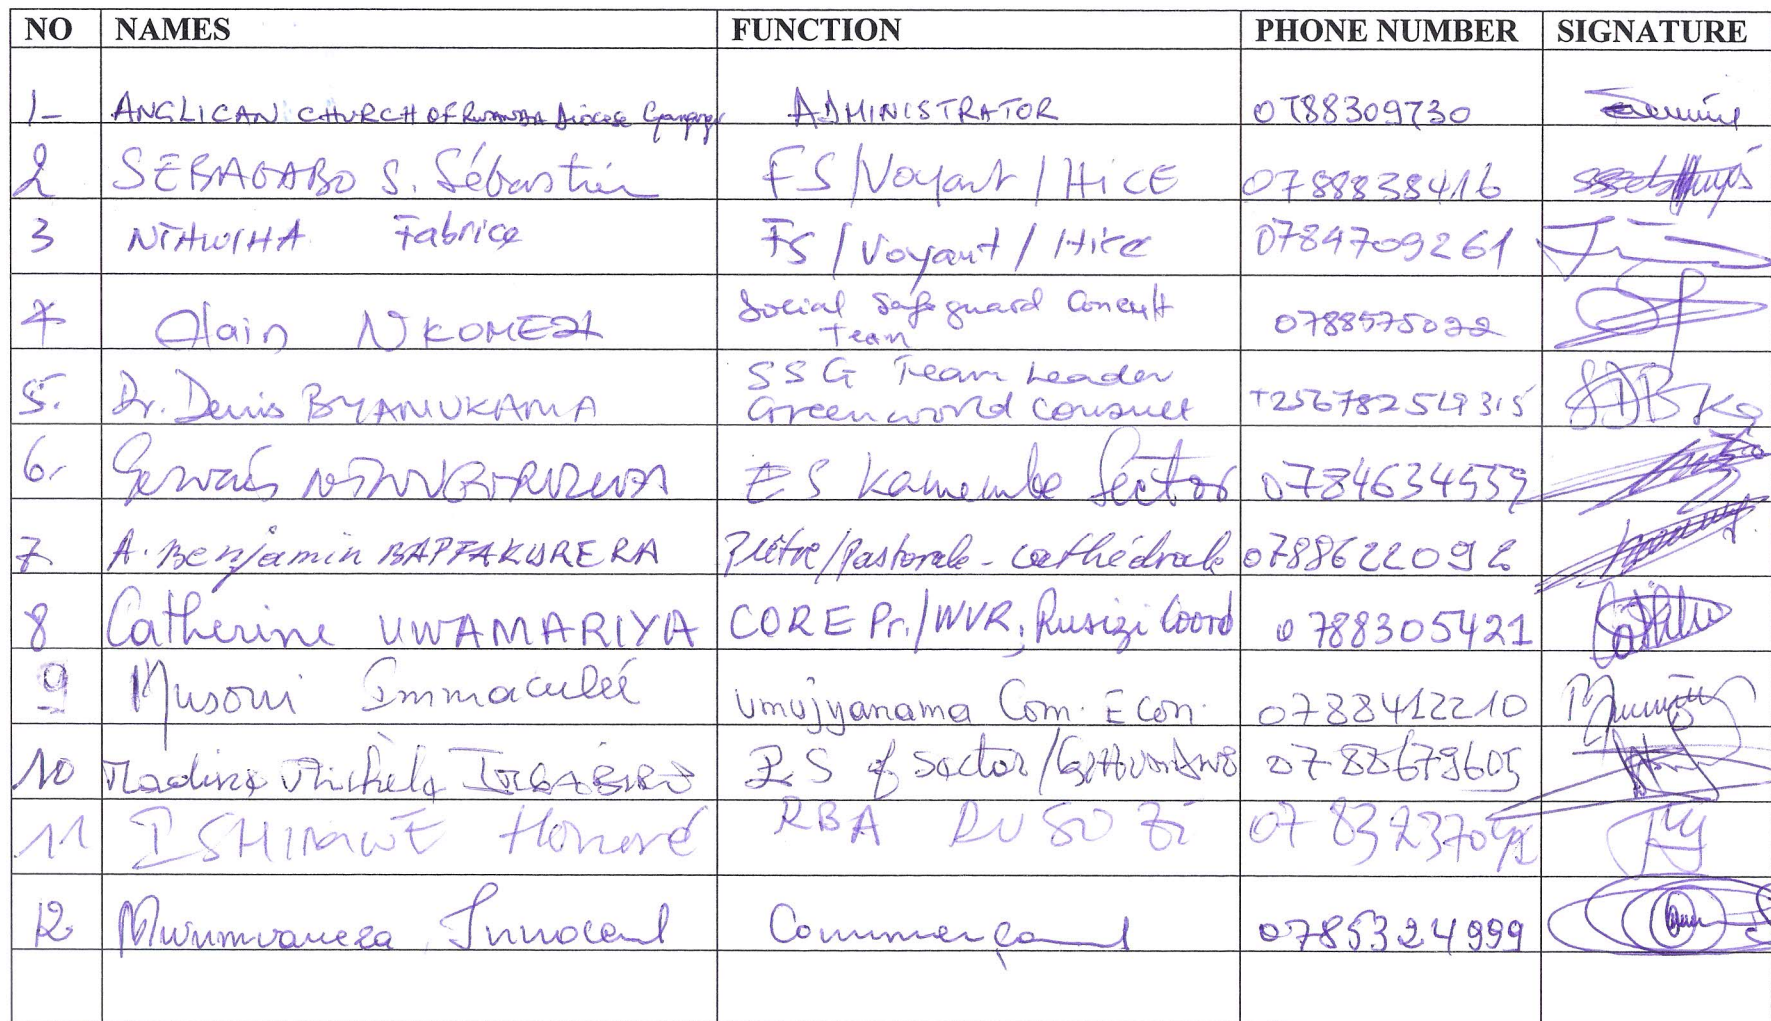 NO NAMES FUNCTION PHONE NUMBER SIGNATURE
1- ANGLICAN CHURCH OF RWANDA Diocese ADMINISTRATOR 0788309730
2 SEBAGABO S. Sébastien FS/Voyant/HiCE 0788838416
3 Fabrice FS/Voyant/HiCE 0784709261
4 Alain NKOMEZI Social Safeguard Consult Team 0788575022
5. Dr. Denis BYAMUKAMA SSG Team Leader Greenworld consult
6. Gervais ES Kamembe Sector 0784634559
7 A. Benjamin BAPFAKURERA Prêtre/Pastorale - cathédrale 0788622092
8 Catherine UWAMARIYA CORE Pr./WVR, Rusizi Coord 0788305421
9 Musoni Immaculée Umujyanama Com. Econ. 0788412210
10 ES of Sector/ 0788679605
11 Honoré RBA
12 Innocent Commerçant 0785324999